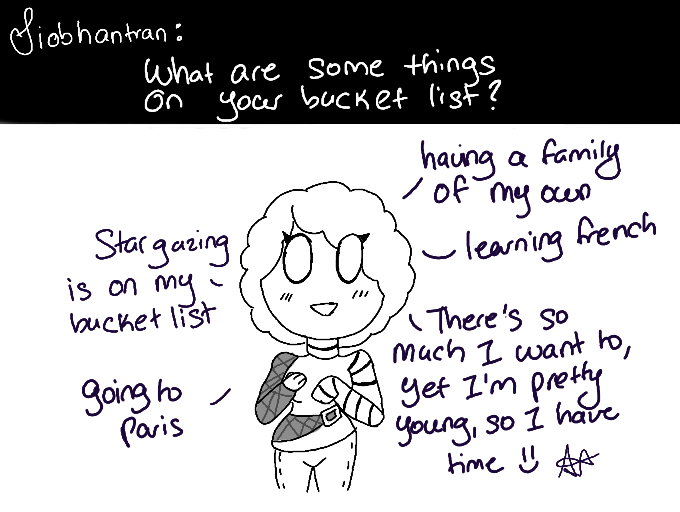 Siobhantran:
What are some things
on your bucket list?
having a family
of my own
Stargazing
is on my
bucket list
learning french
There's so
much I want to,
yet I'm pretty
young, so I have
time
going to
Paris